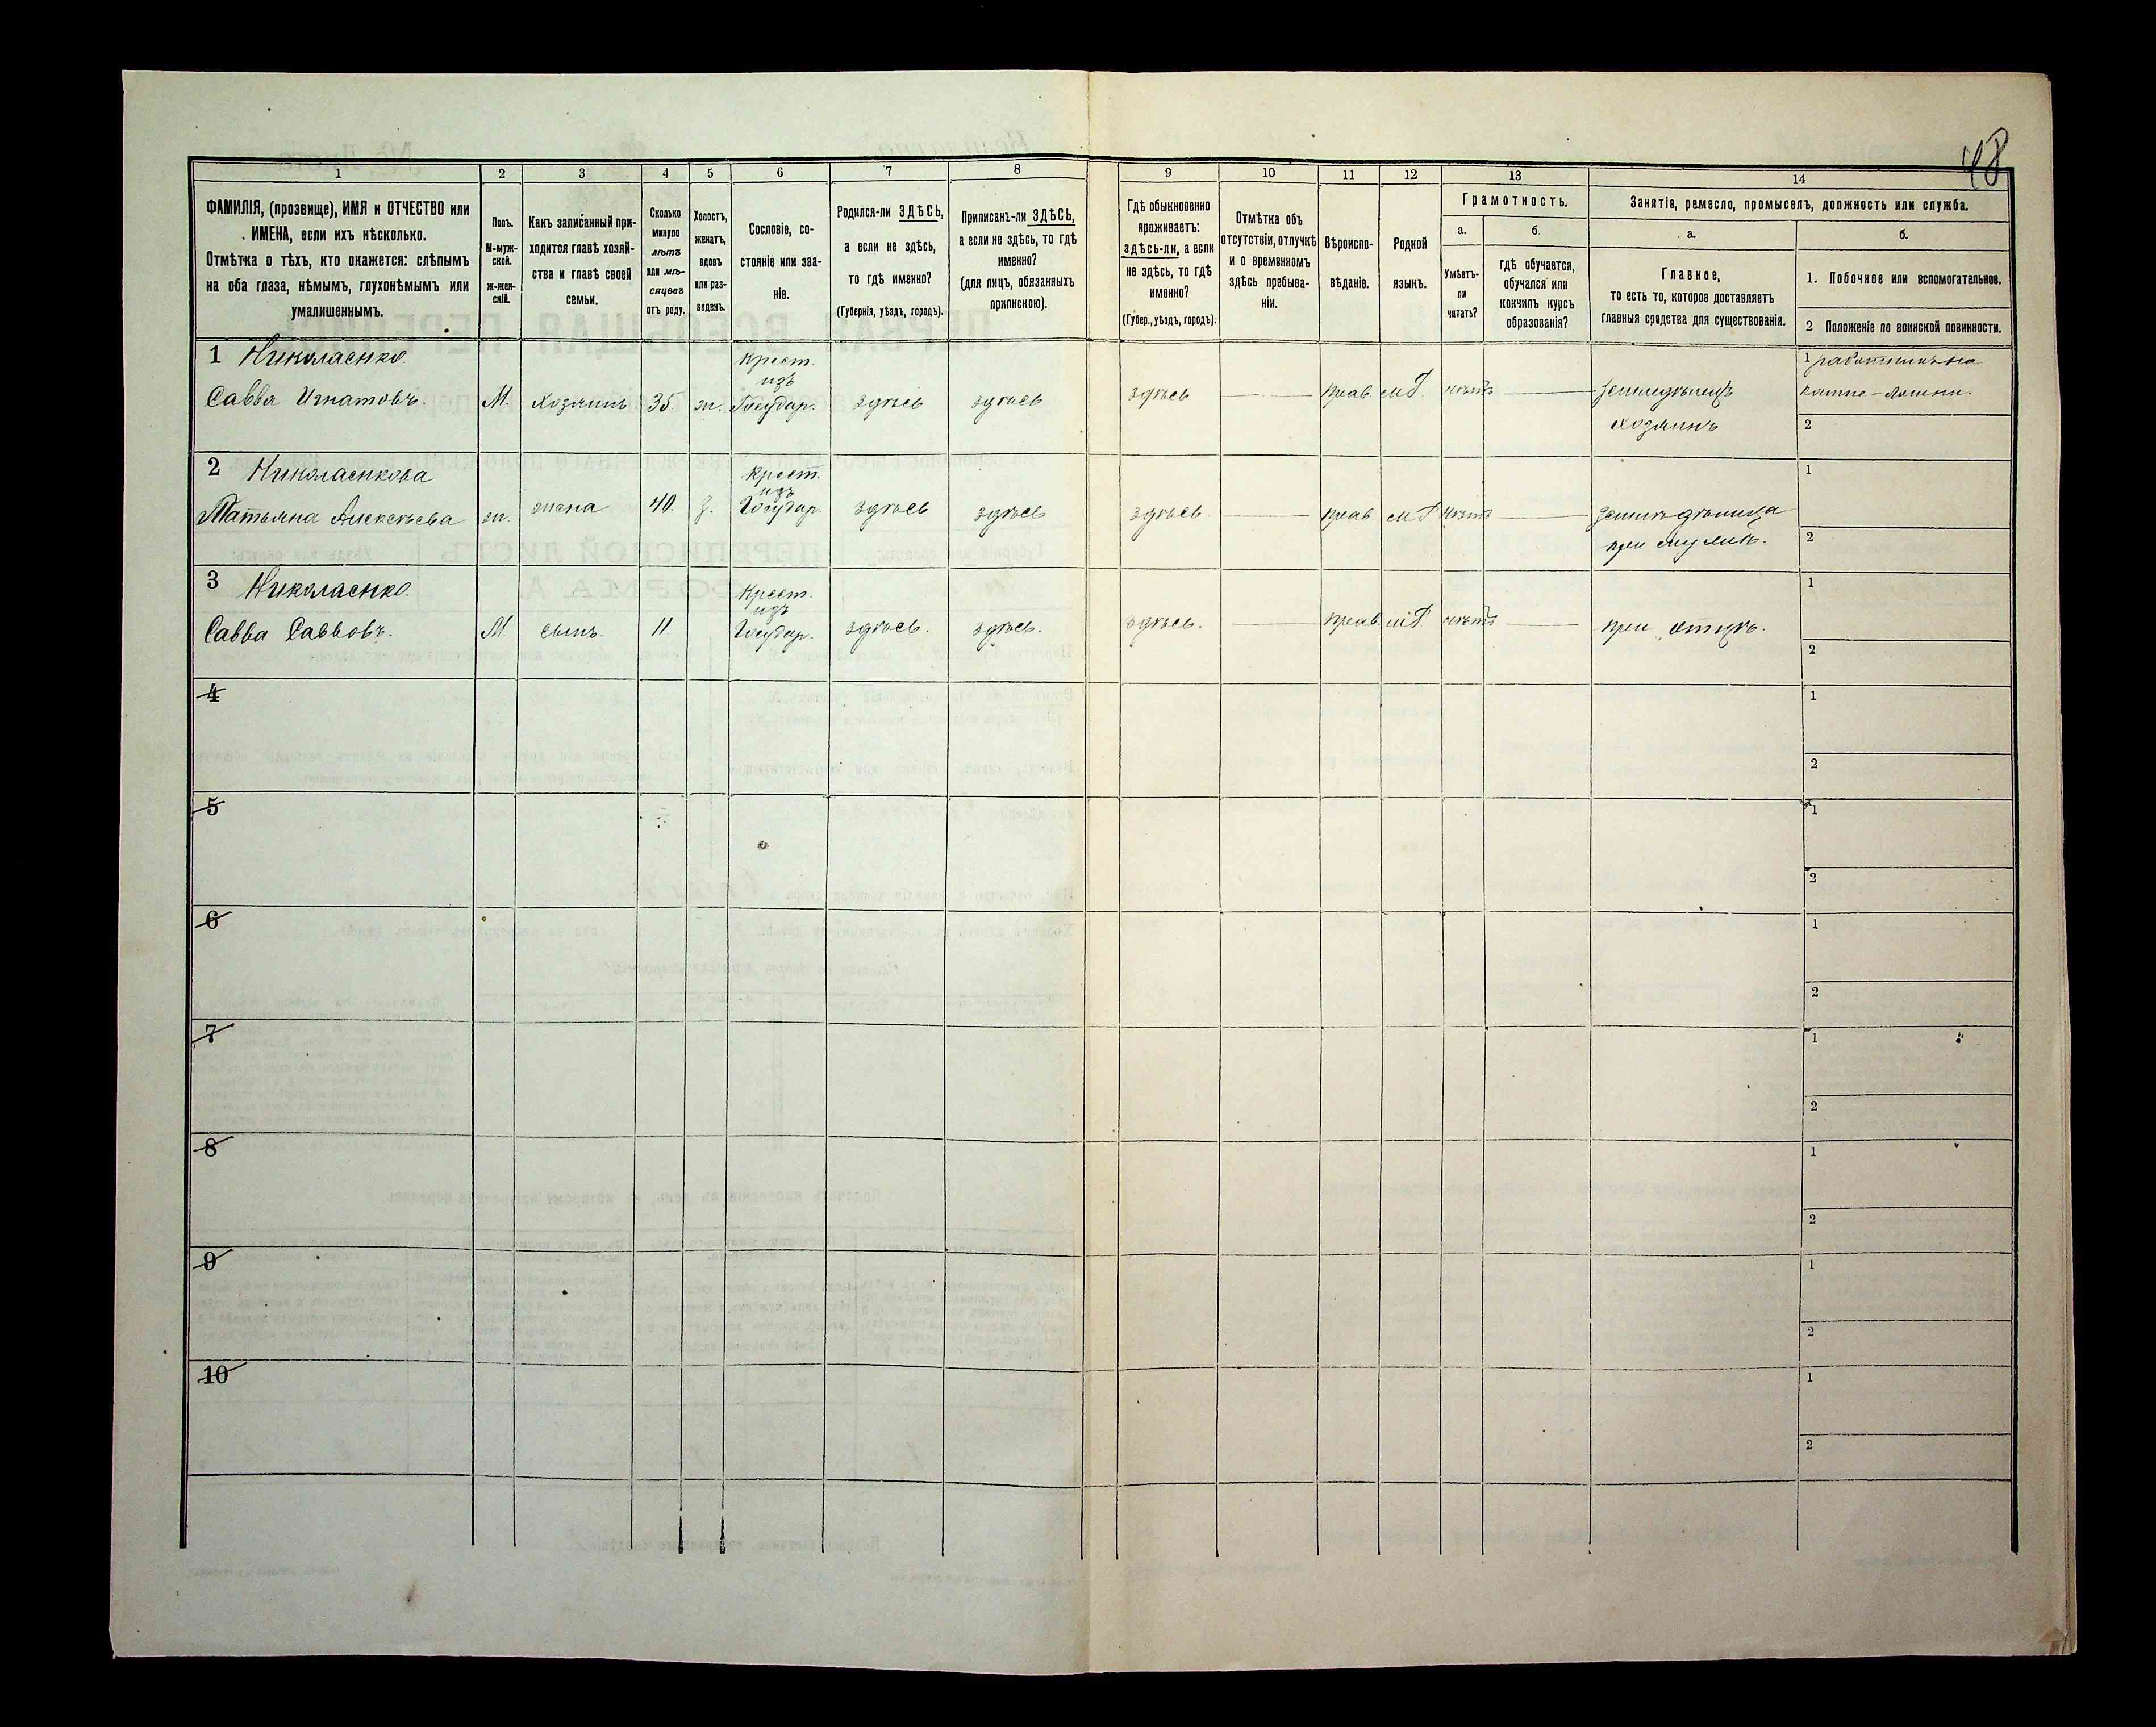 48
1 2 3 4 5 6 7 8 9 10 11 12 13 14
ФАМИЛІЯ, (прозвище), ИМЯ и ОТЧЕСТВО или
ИМЕНА, если ихъ нѣсколько.
Отмѣтка о тѣхъ, кто окажется: слѣпымъ
на оба глаза, нѣмымъ, глухонѣмымъ или
умалишеннымъ.
Полъ.
М-муж-
ской.
Ж-жен-
скій.
Какъ записанный при-
ходится главѣ хозяй-
ства и главѣ своей
семьи.
Сколько
минуло
лѣтъ
или мѣ-
сяцевъ
отъ роду.
Холостъ,
женатъ,
вдовъ
или раз-
веденъ.
Сословіе, со-
стояніе или зва-
ніе.
Родился-ли ЗДѢСЬ,
а если не здѣсь,
то гдѣ именно?
(Губернія, уѣздъ, городъ).
Приписанъ-ли ЗДѢСЬ,
а если не здѣсь, то гдѣ
именно?
(для лицъ, обязанныхъ
припискою).
Гдѣ обыкновенно
проживаетъ:
здѣсь-ли, а если
не здѣсь, то гдѣ
именно?
(Губер., уѣздъ, городъ).
Отмѣтка объ
отсутствіи, отлучкѣ
и о временномъ
здѣсь пребыва-
ніи.
Вѣроиспо-
вѣданіе.
Родной
языкъ.
Грамотность.
а.
Умѣетъ-
ли
читать?
б.
гдѣ обучается,
обучался или
кончилъ курсъ
образованія?
Занятіе, ремесло, промыселъ, должность или служба.
а.
Главное,
то есть то, которое доставляетъ
главныя средства для существованія.
б.
1. Побочное или вспомогательное.
2 Положеніе по воинской повинности.
1 Николаенко. Крест. 1 работникъ на
изъ
Савва Игнатовъ. М. Хозяинъ 35 ж. Государ. здѣсь здѣсь здѣсь прав. нѣтъ земледѣлецъ
хозяинъ 2
2 Николаенкова Крест. 1
изъ
Татьяна Алексѣева ж. жена 40. з. Государ. здѣсь здѣсь здѣсь прав. нѣтъ
при мужѣ. 2
3 Николаенко. Крест. 1
изъ
Савва Саввовъ. М. сынъ. 11 Государ. здѣсь. здѣсь. здѣсь. прав. нѣтъ при отцѣ.
2
4 1
2
5 1
2
6 1
2
7 1
2
8 1
2
9 1
2
10 1
2